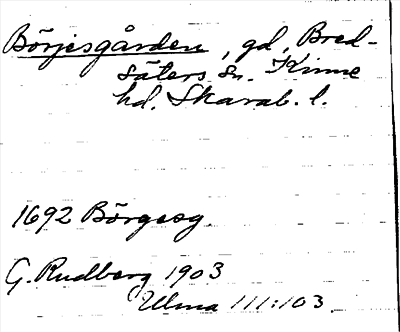 Börjesgården, gd, Bred-
säters sn. Kinne
hd. Skarab. l.
1692 Börgesg.
G. Rudberg 1903
Ulma 111:103